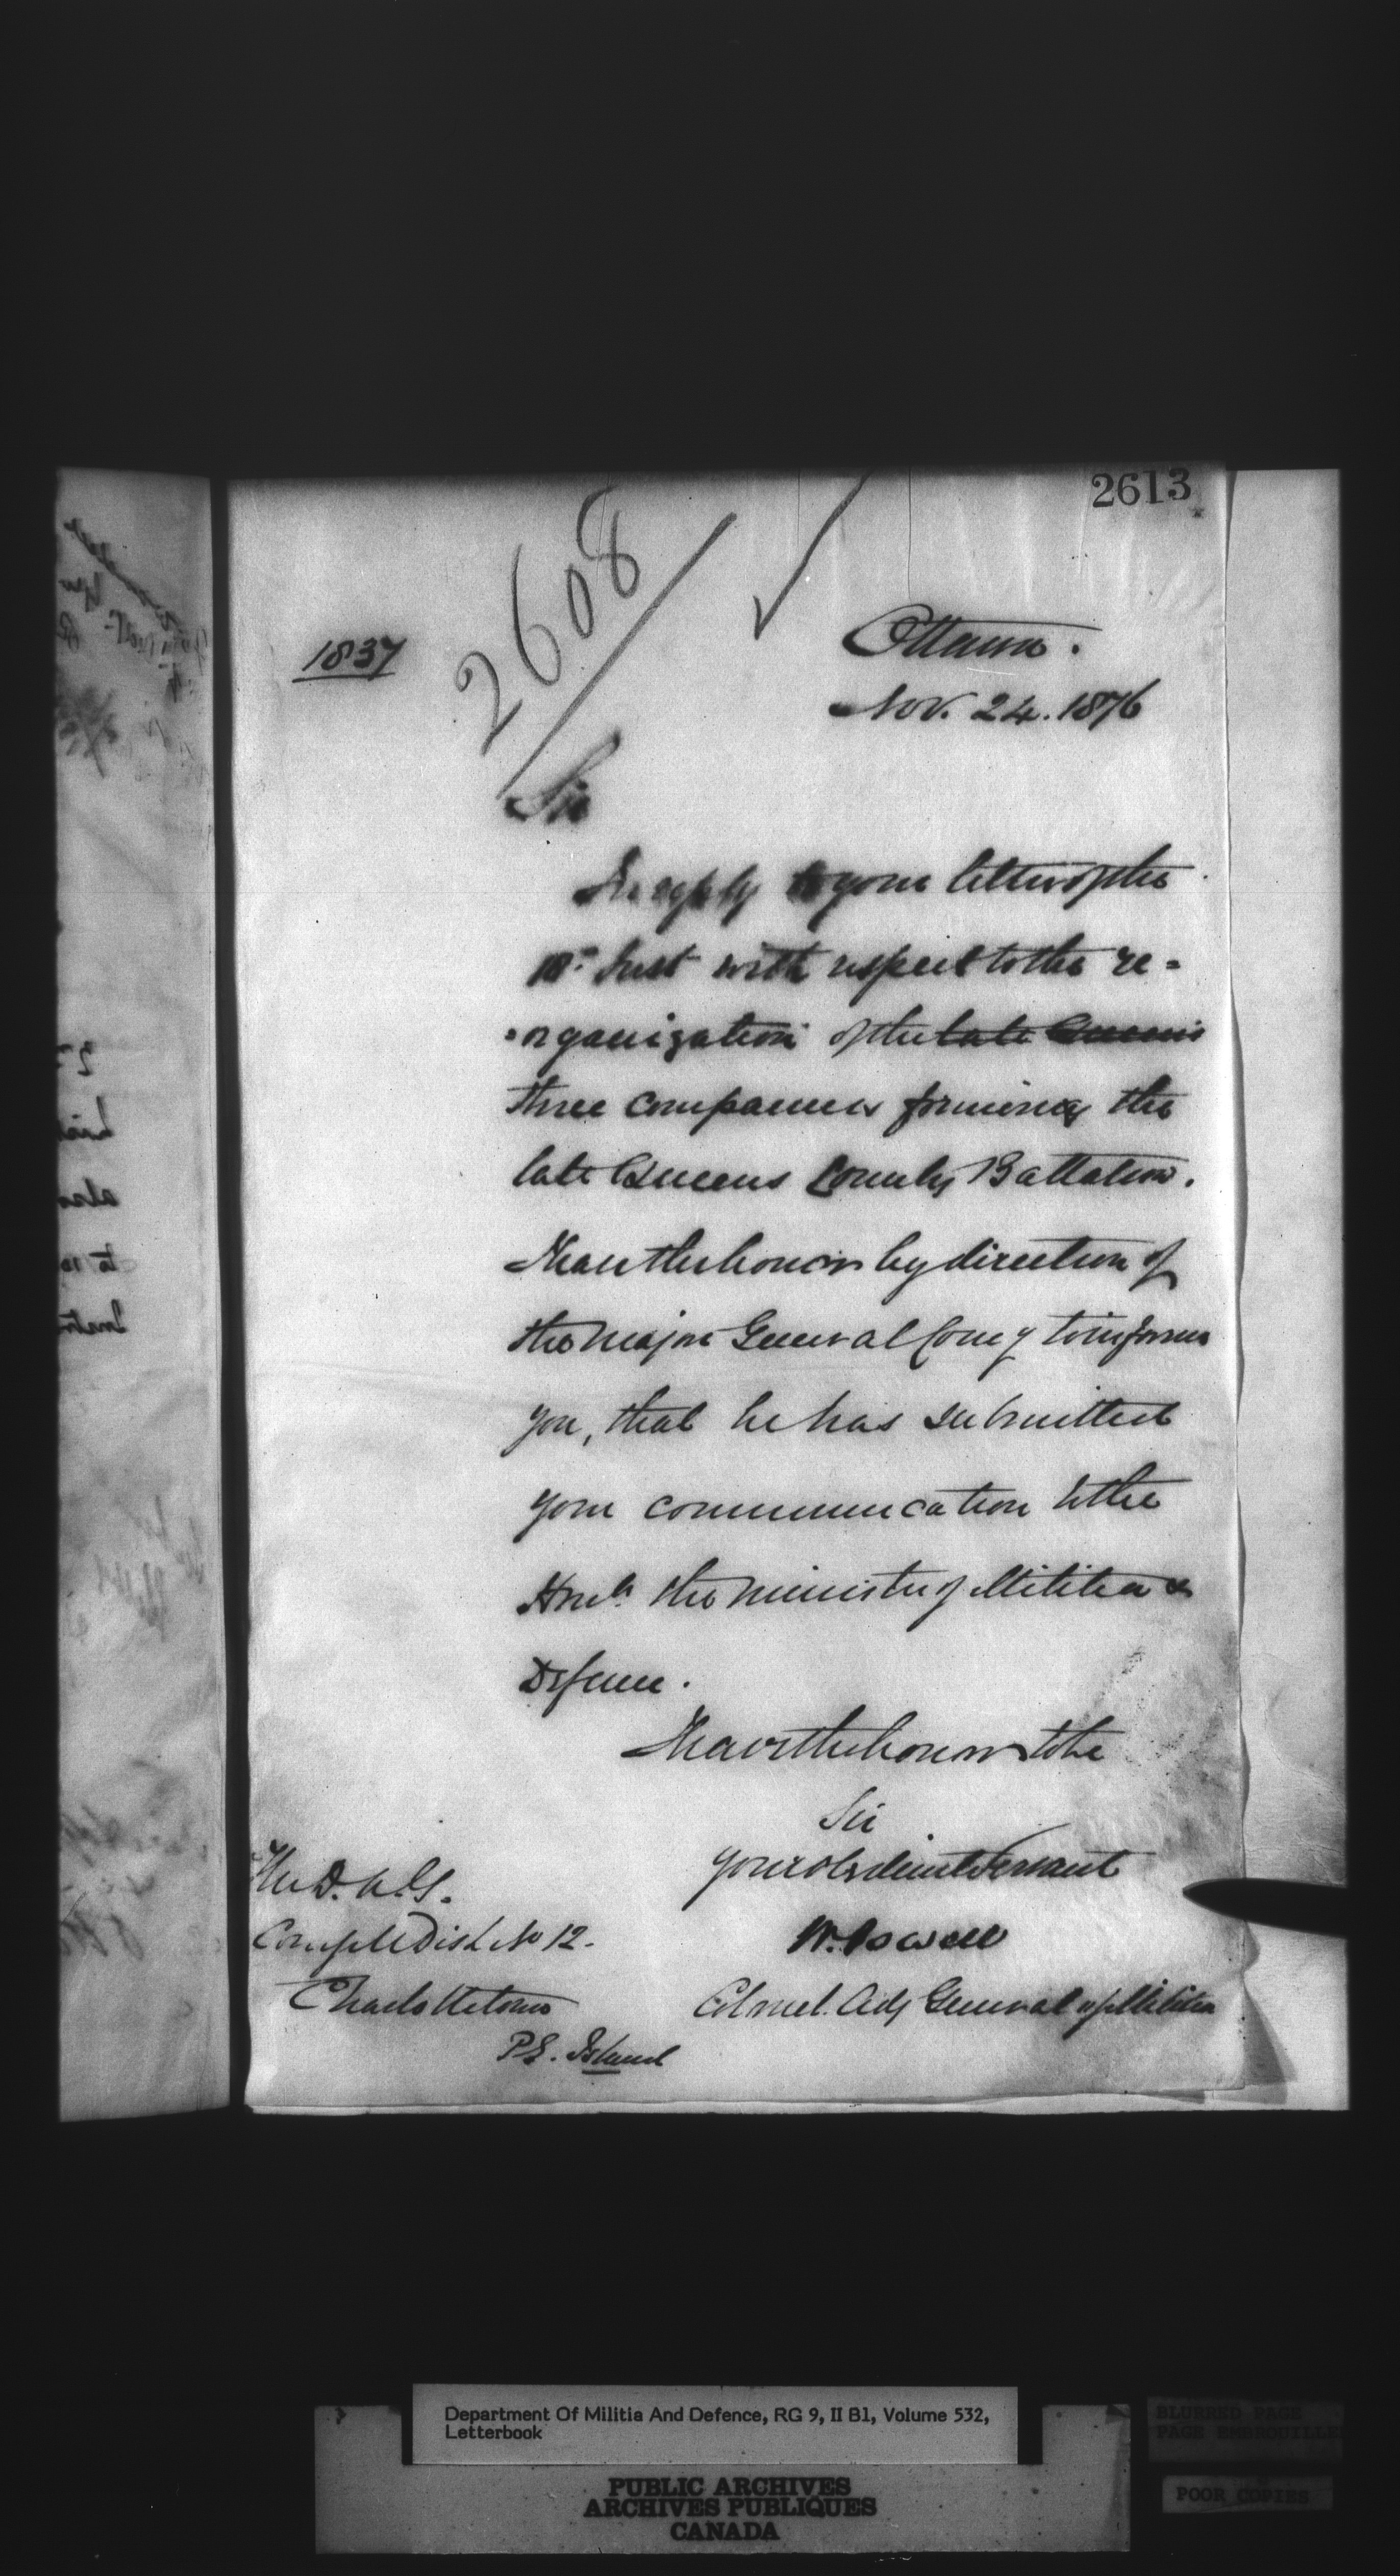 2613
2608
1837
Ottawa.
Nov. 24. 1876
Sir
In reply to your letter of the
18th Inst with respect to the re=
=organization of the late Queens
three companies forming the
late Queens County Battalion.
I have the honor by direction of
the Major General Comg to inform
you, that he has submitted
your communication to the
Honble the Minister of Militia &
Defence.
I have the honor to be
Sir
your obedient Servant
W. Powell
Colonel. Adj General of Militia
The D. A. G.
Comg Mil Dist No 12.
Charlottetown
P E. Island
Department Of Militia And Defence, RG 9, II B1, Volume 532,
Letterbook
PUBLIC ARCHIVES
ARCHIVES PUBLIQUES
CANADA
BLURRED PAGE
PAGE EMBROUILLE
POOR COPIES